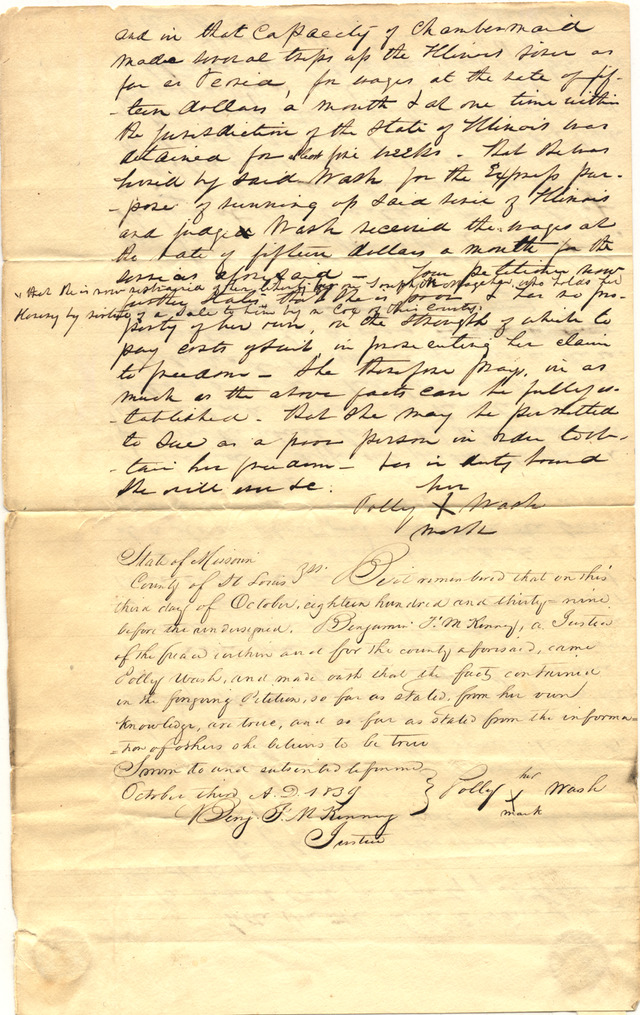 and in that Capacity of Chambermaid
made several trips up the Illinois river as
far as Peoria, for wages at the rate of fif-
-teen dollars a month & at one time within
the jurisdiction of the State of Illinois was
detained for about five weeks - That she was
hired by said Wash for the Express pur-
-pose of running up said river of Illinois
and judge Wash received the wages at
the rate of fifteen dollars a month for the
services aforesaid - Your petitioner now
x that she is now restrained of her liberty by one Joseph M Magehan, who holds her
further states, that she is poor & has no pro-
slavery by virtue of a sale to him by a Cox of this County,
perty of her own, on the strength of which to
pay costs of suit in prosecuting her claim
to freedom - She therefore pray, in as
much as the above facts can be fully es-
-tablished. that she may be permitted
to Sue as a poor person in order to ob-
-tain her freedom - & as in duty bound
she will ever &c.
her
Polly X Wash
mark
State of Missouri
County of St Louis } ss. Be it remembered that on this
third day of October, eighteen hundred and thirty-nine
before the undersigned. Benjamin F. McKenney, a Justice
of the peace within and for the county aforesaid, came
Polly Wash, and made oath that the facts contained
in the foregoing Petition, so far as stated, from her own
knowledge, are true, and so far as stated from the informa-
-tion of others she believes to be true
Sworn to and subscribed before me
October third A.D. 1839 } Polly her X mark Wash
Benj. F. McKenney
Justice